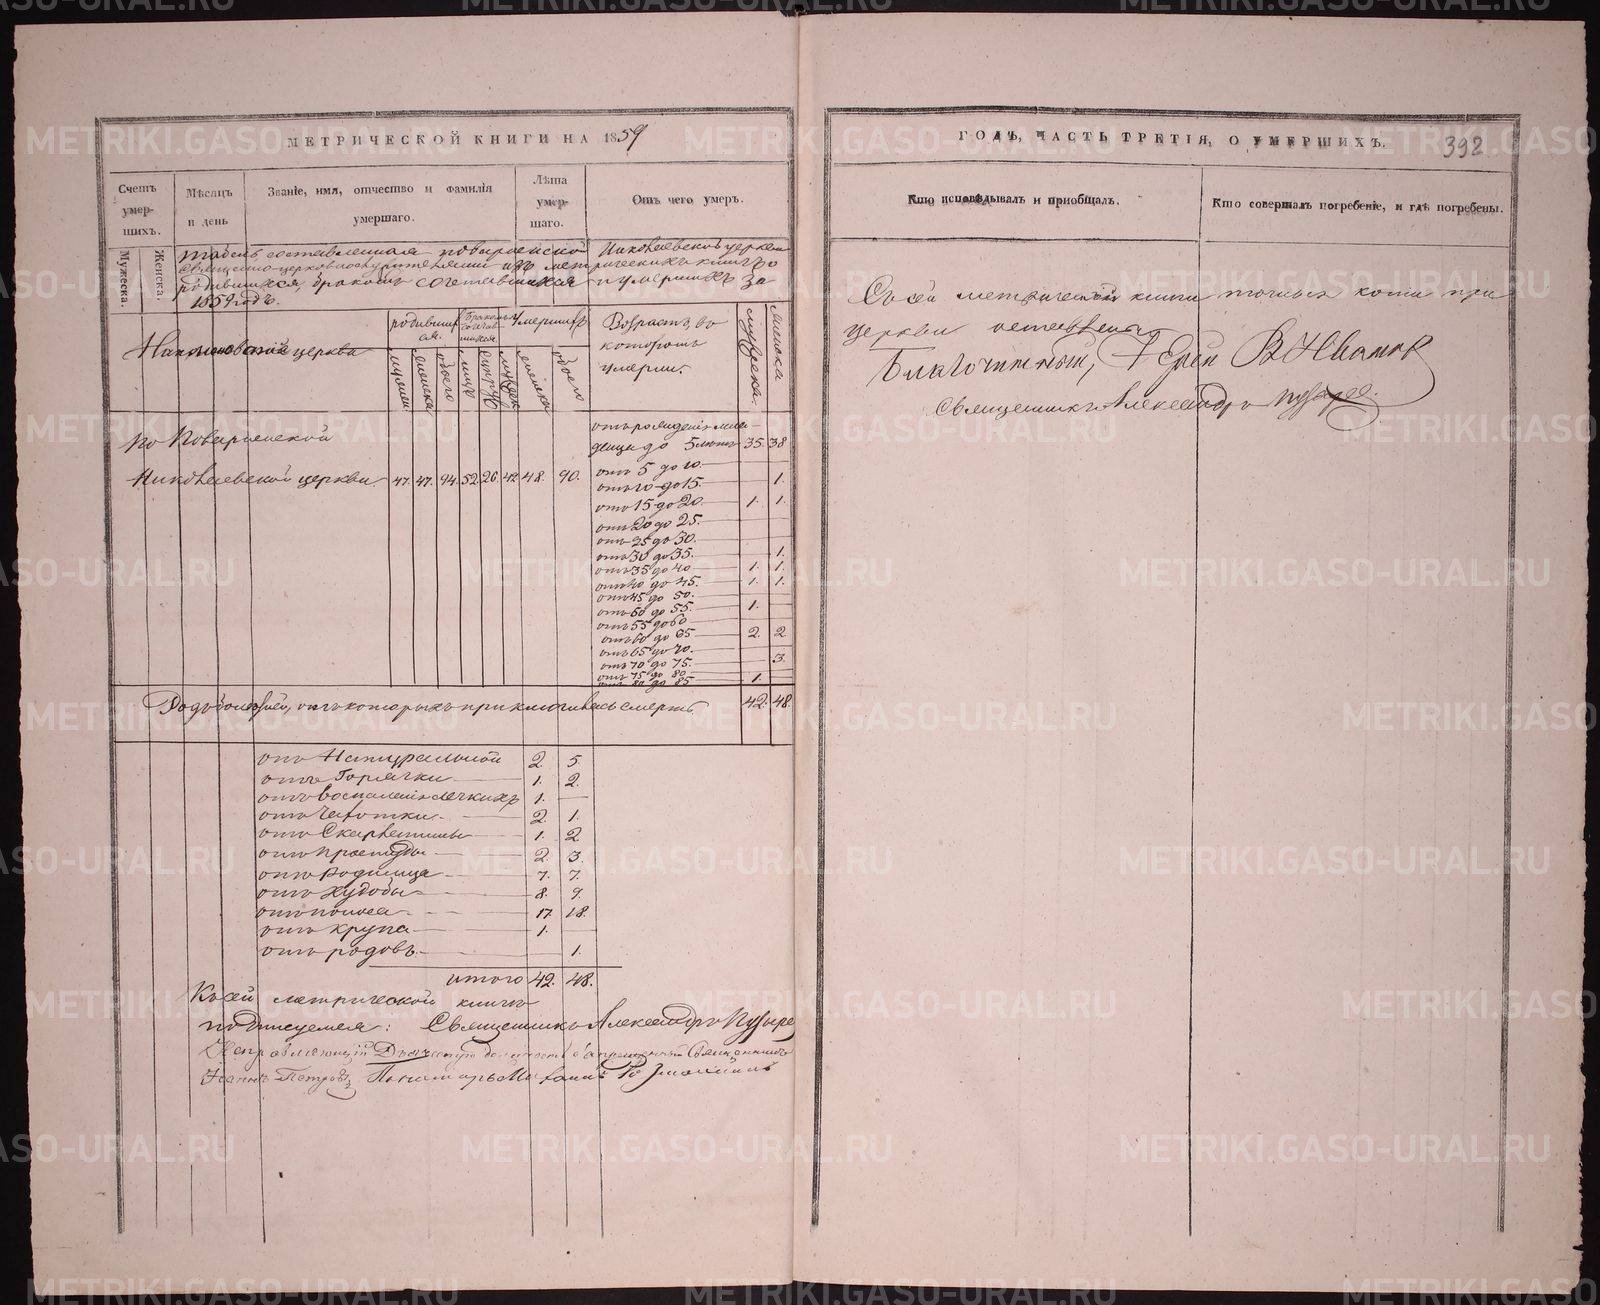 МЕТРИЧЕСКОЙ КНИГИ НА 1859
ГОДЪ, ЧАСТЬ ТРЕТІЯ, О УМЕРШИХЪ.
392
Счетъ умер-шихъ.
Мѣсяцъ и день
Званіе, имя, отчество и фамилія умершаго.
Лѣта умер-шаго.
Отъ чего умеръ.
Кто исповѣдывалъ и приобщалъ.
Кто совершалъ погребеніе, и гдѣ погребены.
Мужеска.
Женска.
Табель составленная Поваренской Николаевской церкви
священно-церковнослужителями изъ метрическихъ книгъ о
родившихся, бракомъ сочетавшихся и умершихъ за
1859 годъ.
Наименованіе церкви
родившихся.
Бракомъ сочетавшихся
Умершихъ
Возрастъ, во
которомъ
умерли.
мужеска.
женска
женска
обоего
женска
обоего
По Поваренской
Николаевской церкви. 47. 47. 94. 52. 26. 42. 48. 90.
отъ рожденія мла-
денца до 5 лѣтъ 35. 38
отъ 5 до 10.
отъ 10 до 15. 1.
отъ 15 до 20. 1. 1.
отъ 20 до 25.
отъ 25 до 30.
отъ 30 до 35. 1.
отъ 35 до 40 1. 1.
отъ 40 до 45. 1. 1.
отъ 45 до 50.
отъ 50 до 55. 1.
отъ 55 до 60
отъ 60 до 65 2. 2
отъ 65 до 70.
отъ 70 до 75. 3.
отъ 75 до 80 1.
отъ 80 до 85
Родъ болѣзней, отъ которыхъ приключилась смерть 42. 48
отъ Натуральной 2. 5
отъ Горячки 1. 2.
отъ воспаленія легкихъ 1.
отъ Чахотки 2. 1.
отъ Скарлатины 1. 2
отъ Простуды 2. 3.
отъ Родимца 7. 7.
отъ Худобы 8 9.
отъ поноса 17. 18.
отъ крупа 1.
отъ родовъ. 1.
итого 42. 48.
Къ сей метрической книгѣ
подписуемся: Священникъ Александръ Пузырев
Исправляющій Дьяческую должность запрещенный Священникъ
Іоаннъ Петровъ Пономарь
Съ сей метрической книги точная копія при
церкви оставлена
Благочинный, Іерей В Ивановъ
Священникъ Александръ Пузырев.
METRIKI.GASO-URAL.RU